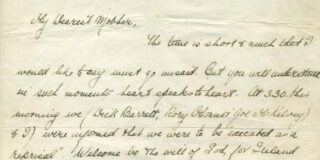 My Dearest Mother,
The time is short & much that I
would like to say must go unsaid. But you will understand
in such moments heart speaks to heart. At 3.30 this
morning we (Dick Barrett, Rory O'Connor, Joe McKelvey
& I) were informed that we were to be executed as a
reprisal". Welcome be the will of God, for Ireland